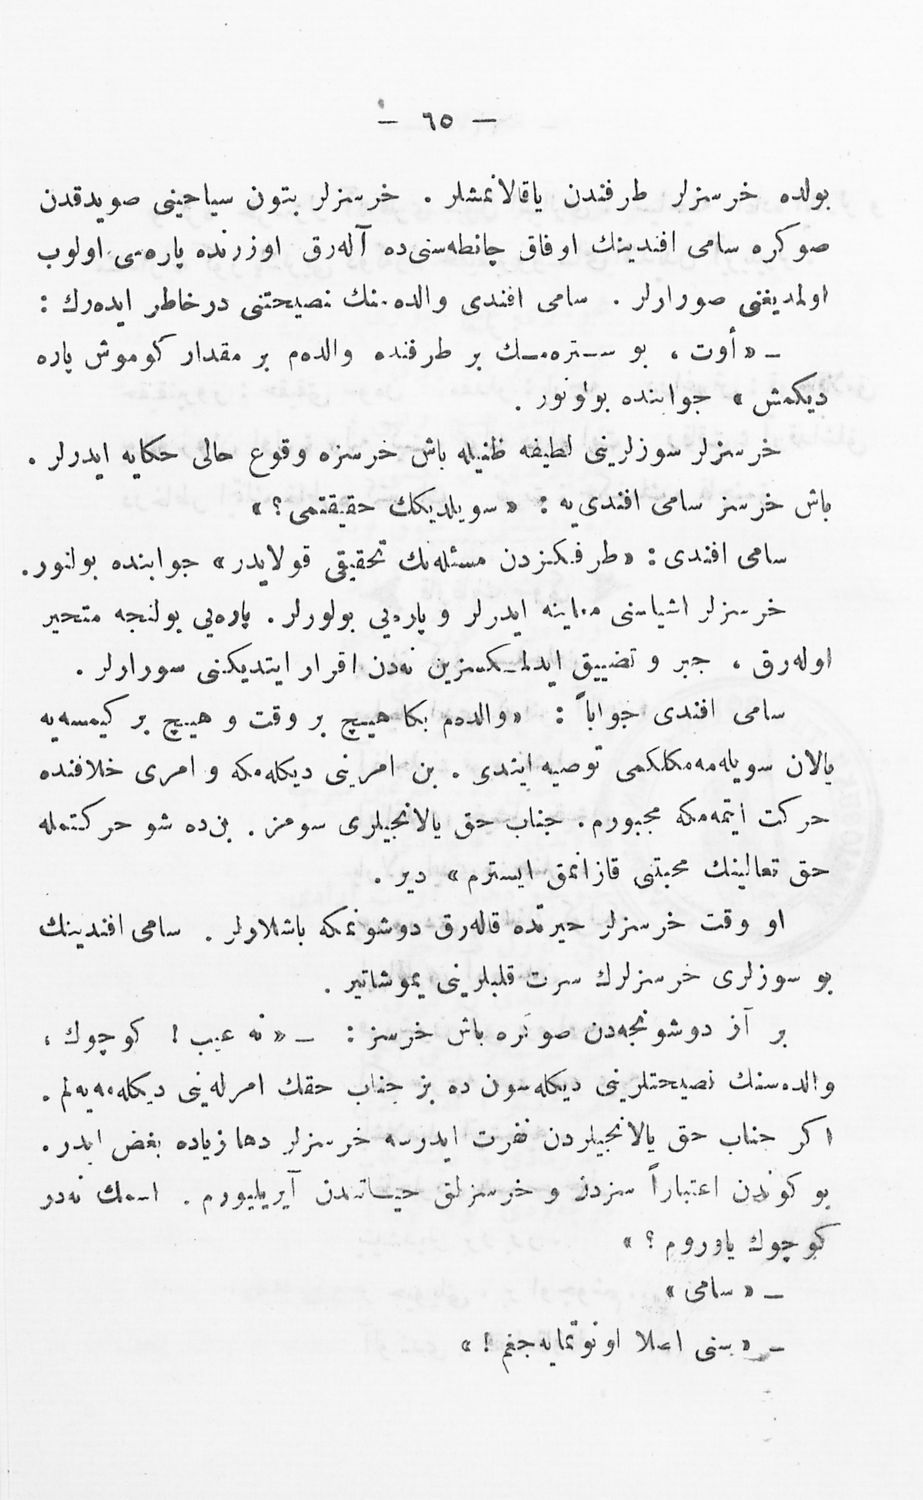 — ٦٥ —
يولده خرسزلر طرفندن ياقالانمشلر . خرسزلر بتون سياحينى صويدقدن
صوكره سامى افندينك اوفاق چانطه‌سنى‌ده آله‌رق اوزرنده پاره‌سى اولوب
اولمديغنى صورارلر . سامى افندى والده‌سنك نصيحتنى درخاطر ايده‌رك :
— «أوت ، بو ستره‌مك بر طرفنده والده‌م بر مقدار كوموش پاره
ديكمش» جوابنده بولونور .
خرسزلر سوزلرينى لطيفه ظنيله باش خرسزه وقوع حالى حكايه ايدرلر .
باش خرسز سامى افندى‌يه : «سويلديكك حقيقتمى ؟»
سامى افندى : «طرفكزدن مسئله‌نك تحقيقى قولايدر» جوابنده بولنور.
خرسزلر اشياسنى معاينه ايدرلر و پاره‌يى بولورلر . پاره‌يى بولنجه متحير
اوله‌رق ، جبر و تضييق ايدلمكسزين نه‌دن اقرار ايتديكنى سورارلر .
سامى افندى جواباً : «والده‌م بكا هيچ بر وقت و هيچ بر كيمسه‌يه
يالان سويله‌مه‌مكلكمى توصيه ايتدى . بن امرينى ديكله‌مكه و امرى خلافنده
حركت ايتمه‌مكه مجبورم . جناب حق يالانجيلرى سومز . بن‌ده شو حركتمله
حق تعالينك محبتنى قازانمق ايسترم» دير .
او وقت خرسزلر حيرتده قاله‌رق دوشونمكه باشلاولر . سامى افندينك
بو سوزلرى خرسزلرك سرت قلبلرينى يموشاتير .
بر آز دوشونجه‌دن صوكره باش خرسز : — «نه عيب ! كوچوك ،
والده‌سنك نصيحتلرينى ديكله‌سون ده بز جناب حقك امرله‌ينى ديكله‌مه‌يه‌لم .
اكر جناب حق يالانجيلردن نفرت ايدرسه خرسزلر دها زياده بغض ايدر .
بو كوندن اعتباراً سزدن و خرسزلق حياتندن آيريليورم . اسمك نه‌در
كوچوك ياوروم ؟»
— «سامى»
— «سنى اصلا اونوتمايه‌جغم !»